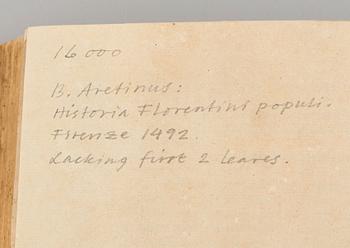 16000
B. Aretinus:
Historia Florentini populi.
Firenze 1492.
Lacking first 2 leaves.